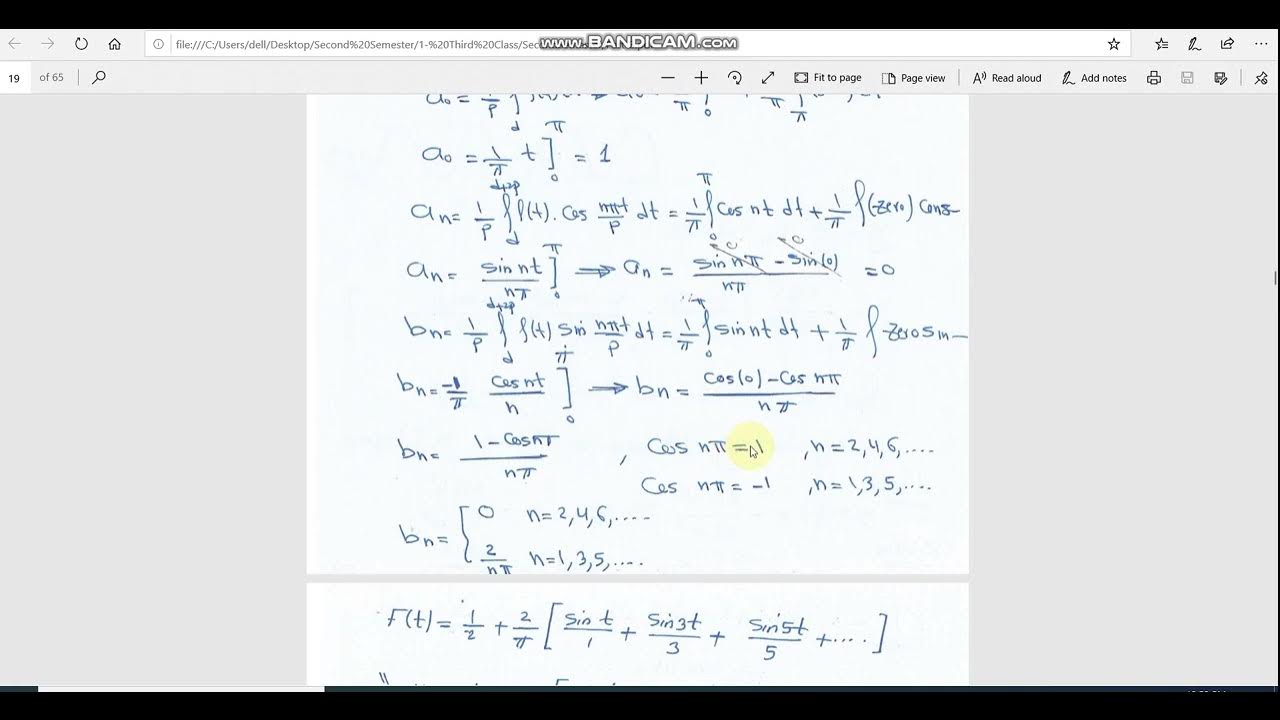 www.BANDICAM.com
file:///C:/Users/dell/Desktop/Second%20Semester/1-%20Third%20Class/Sec
19 of 65 Fit to page Page view Read aloud Add notes
a₀ = 1/π t ]₀^π = 1
aₙ = 1/p ∫_d^{d+2p} f(t). Cos nπt/p dt = 1/π ∫₀^π Cos nt dt + 1/π ∫(zero) Cons-
aₙ = sin nt/nπ ]₀^π ⟹ aₙ = (sin nπ - sin(0))/nπ = 0
bₙ = 1/p ∫_d^{d+2p} f(t) sin nπt/p dt = 1/π ∫₀^π sin nt dt + 1/π ∫ zero sin-
bₙ = -1/π Cos nt/n ]₀^π ⟹ bₙ = (Cos(0) - Cos nπ)/nπ
bₙ = (1 - Cos nπ)/nπ , Cos nπ = 1 , n = 2,4,6,....
Cos nπ = -1 , n = 1,3,5,....
bₙ = [ 0 n = 2,4,6,....
2/nπ n = 1,3,5,....
F(t) = 1/2 + 2/π [ sin t/1 + sin 3t/3 + sin 5t/5 + .... ]